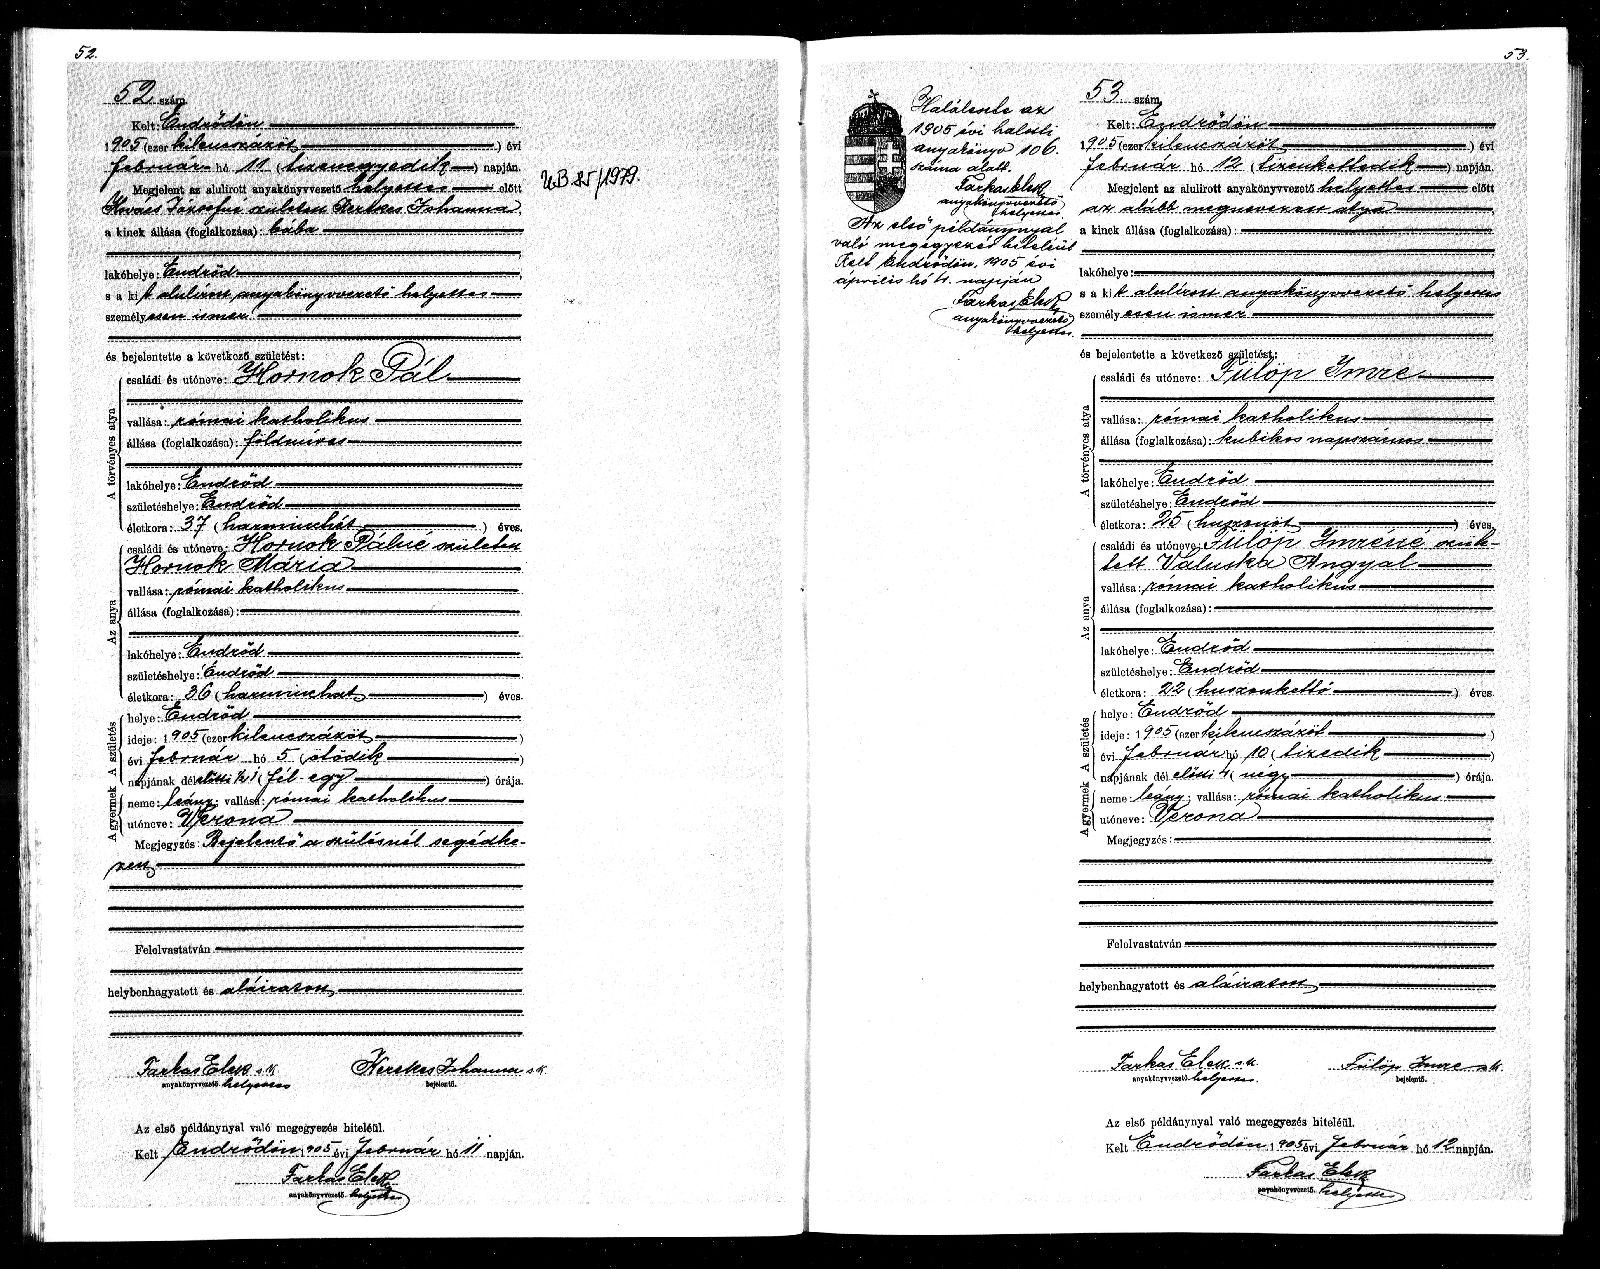 52.
52 szám
Kelt: Endrődön
1905 (ezer kilencszázöt) évi
február hó 11 (tizenegyedik) napján.
Megjelent az alulirott anyakönyvvezető helyettes előtt
Kovács Józsefné született Kerekes Johanna,
a kinek állása (foglalkozása): bába
lakóhelye: Endrőd
s a kit alulírott anyakönyvvezető helyettes
személyesen ismer
és bejelentette a következő születést:
A törvényes atya
családi és utóneve: Hornok Pál
vallása: római katholikus
állása (foglalkozása): földmíves
lakóhelye: Endrőd
születéshelye: Endrőd
életkora: 37 (harminchét) éves.
Az anya
családi és utóneve: Hornok Pálné született
Hornok Mária
vallása: római katholikus
állása (foglalkozása):
lakóhelye: Endrőd
születéshelye: Endrőd
életkora: 36 (harminchat) éves.
A gyermek A születés
helye: Endrőd
ideje: 1905 (ezer kilencszázöt)
évi február hó 5 (ötödik
napjának délelőtti ½1 (fél egy) órája.
neme: leány; vallása: római katholikus
utóneve: Verona
Megjegyzés: Bejelentő a szülésnél segédke-
zett
Felolvastatván
helybenhagyatott és aláiratott
Farkas Elek s.k. Kerekes Johanna s.k.
anyakönyvvezető helyettes bejelentő.
Az első példánynyal való megegyezés hiteléül.
Kelt Endrődön, 1905 évi február hó 11 napján.
Farkas Elek
anyakönyvvezető. helyettes
UB 25/1979.
53.
Halálesete az
1905 évi halotti
anyakönyv 106.
száma alatt.
Farkas Elek
anyakönyvvezető
helyettes.
Az első példánynyal
való megegyezés hiteléül
Kelt Endrődön, 1905 évi
április hó 4. napján
Farkas Elek
anyakönyvvezető
helyettes
53 szám
Kelt: Endrődön
1905 (ezer kilencszázöt) évi
február hó 12 (tizenkettedik) napján.
Megjelent az alulirott anyakönyvvezető helyettes előtt
az alább megnevezett atya
a kinek állása (foglalkozása):
lakóhelye:
s a kit alulírott anyakönyvvezető helyettes
személyesen ismer
és bejelentette a következő születést:
A törvényes atya
családi és utóneve: Fülöp Imre
vallása: római katholikus
állása (foglalkozása): kubikos napszámos
lakóhelye: Endrőd
születéshelye: Endrőd
életkora: 25 (huszonöt) éves.
Az anya
családi és utóneve: Fülöp Imréné szüle-
tett Valuska Angyal
vallása: római katholikus
állása (foglalkozása):
lakóhelye: Endrőd
születéshelye: Endrőd
életkora: 22 (huszonkettő) éves.
A gyermek A születés
helye: Endrőd
ideje: 1905 (ezer kilencszázöt)
évi február hó 10 (tizedik)
napjának dél előtti 4 (négy) órája.
neme: leány; vallása: római katholikus
utóneve: Verona
Megjegyzés:
Felolvastatván
helybenhagyatott és aláiratott
Farkas Elek s.k. Fülöp Imre s.k.
anyakönyvvezető helyettes. bejelentő.
Az első példánynyal való megegyezés hiteléül.
Kelt Endrődön, 1905 évi február hó 12 napján.
Farkas Elek
anyakönyvvezető. helyettes